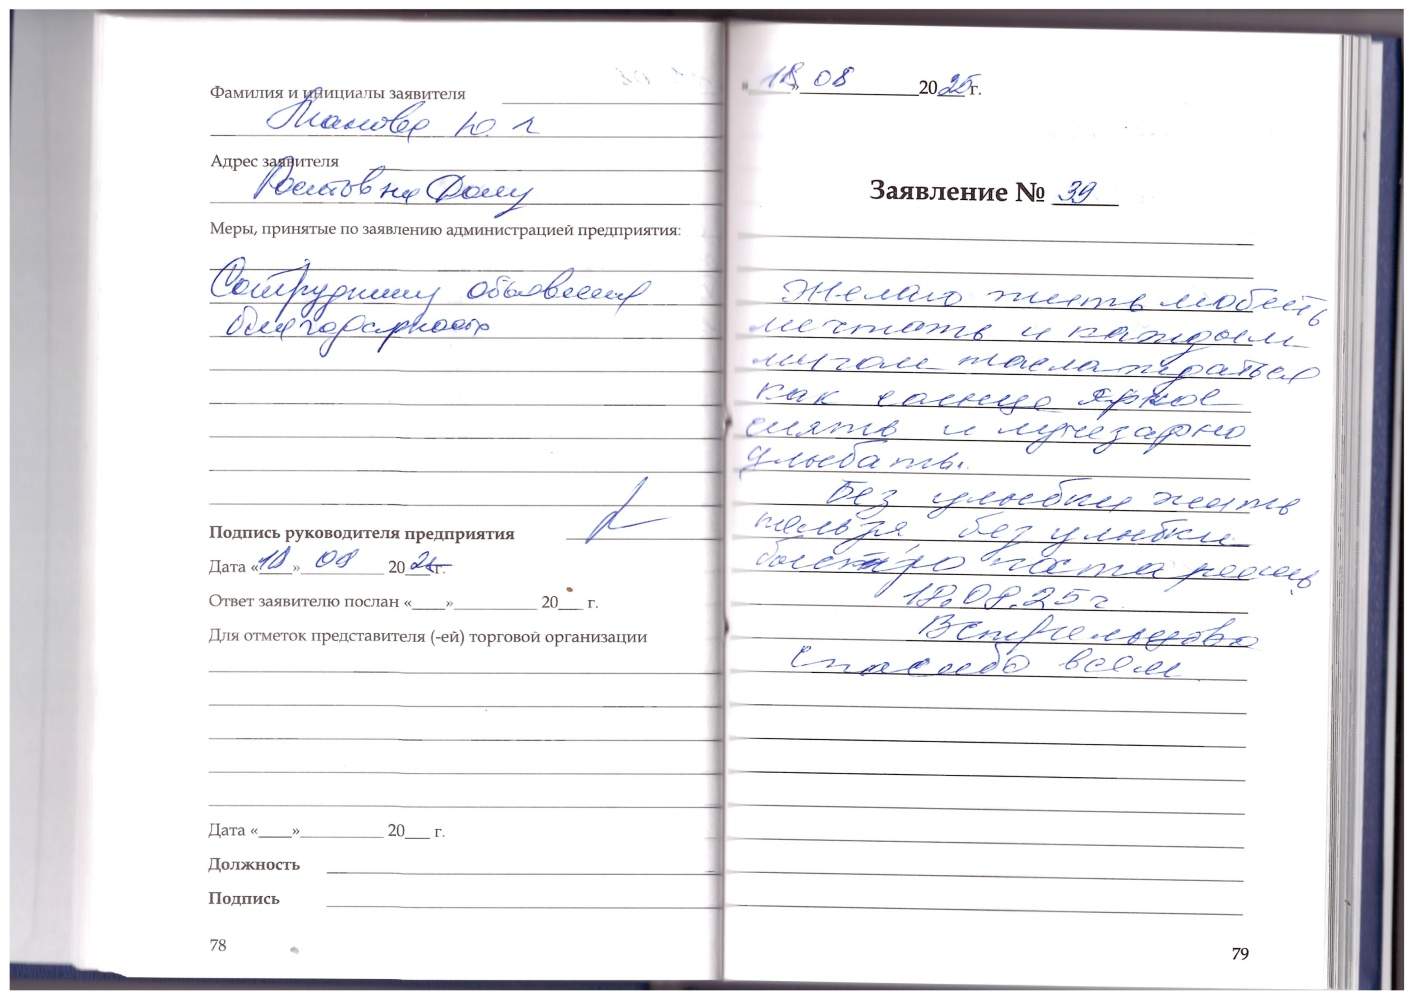 Фамилия и инициалы заявителя
Ю. Г
Адрес заявителя
Ростов на Дону
Меры, принятые по заявлению администрацией предприятия:
Сотруднику объявлена
благодарность
Подпись руководителя предприятия
Дата «18» 08 20 г.
Ответ заявителю послан «____»__________ 20___ г.
Для отметок представителя (-ей) торговой организации
Дата «____»__________ 20___ г.
Должность
Подпись
78
«18» 08 2025 г.
Заявление № 39
Желаю жить любить
мечтать и каждым
мигом наслаждаться
как солнце яркое
сиять и лучезарно
улыбать.
Без улыбки жить
нельзя, без улыбки
быстро
18.08.25 г.
спасибо всем
79